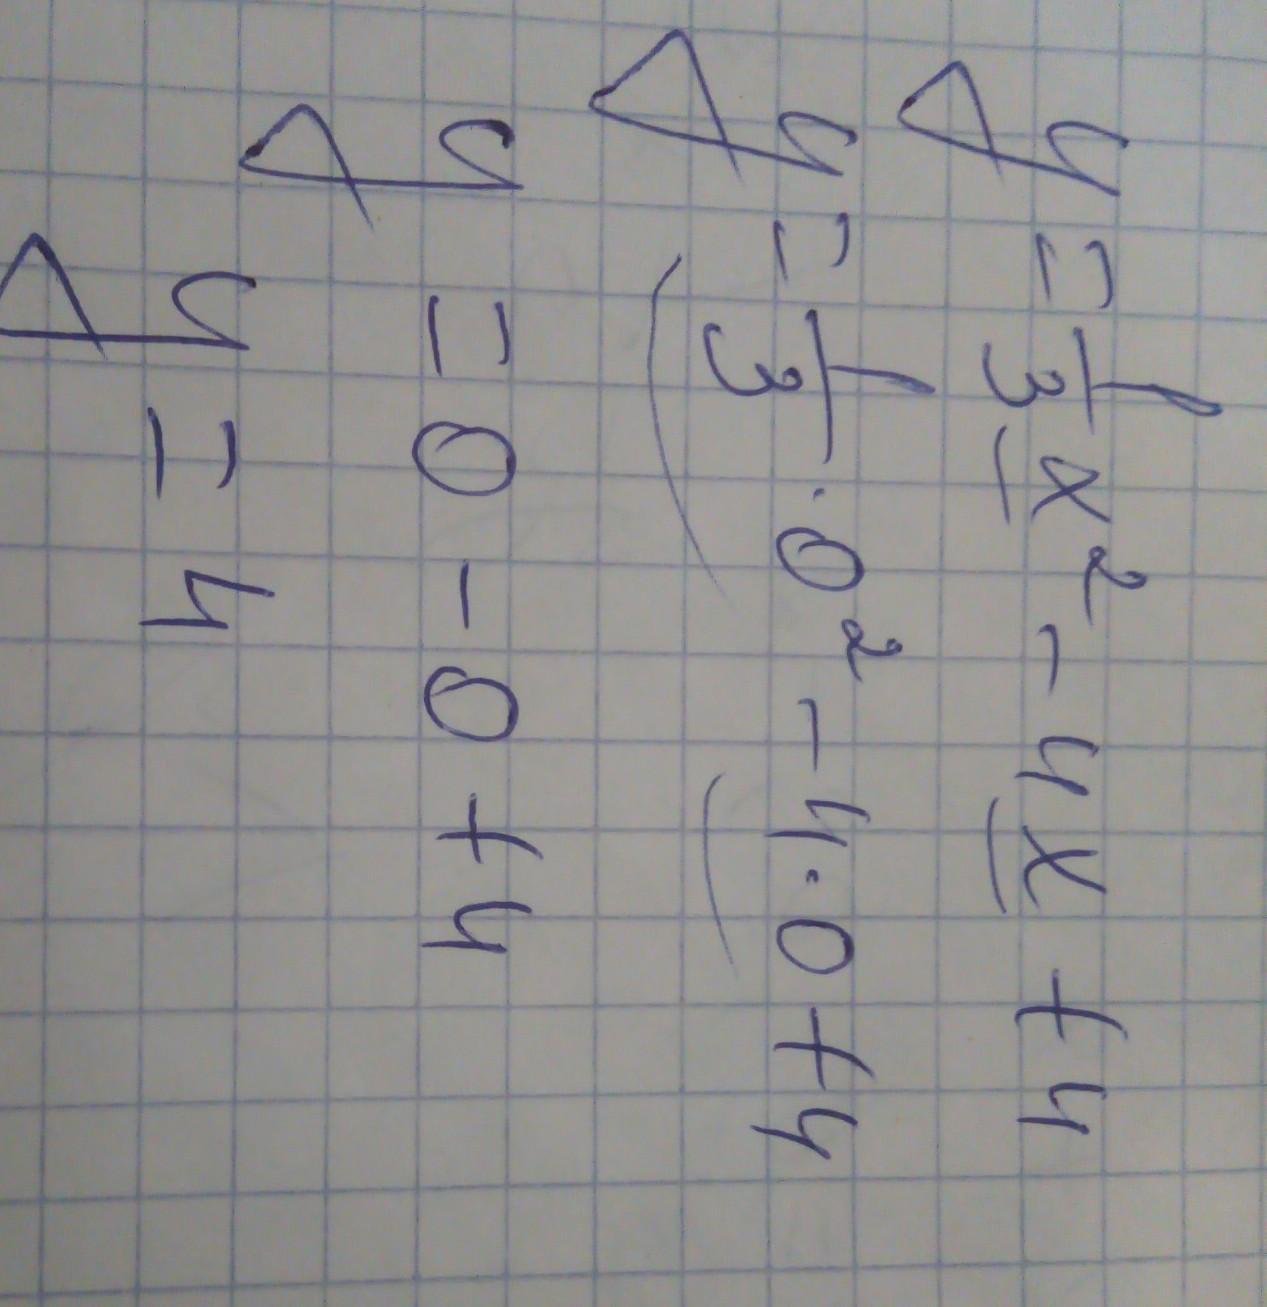 y = 1/3 x² - 4x + 4
y = 1/3 · 0² - 4 · 0 + 4
y = 0 - 0 + 4
y = 4